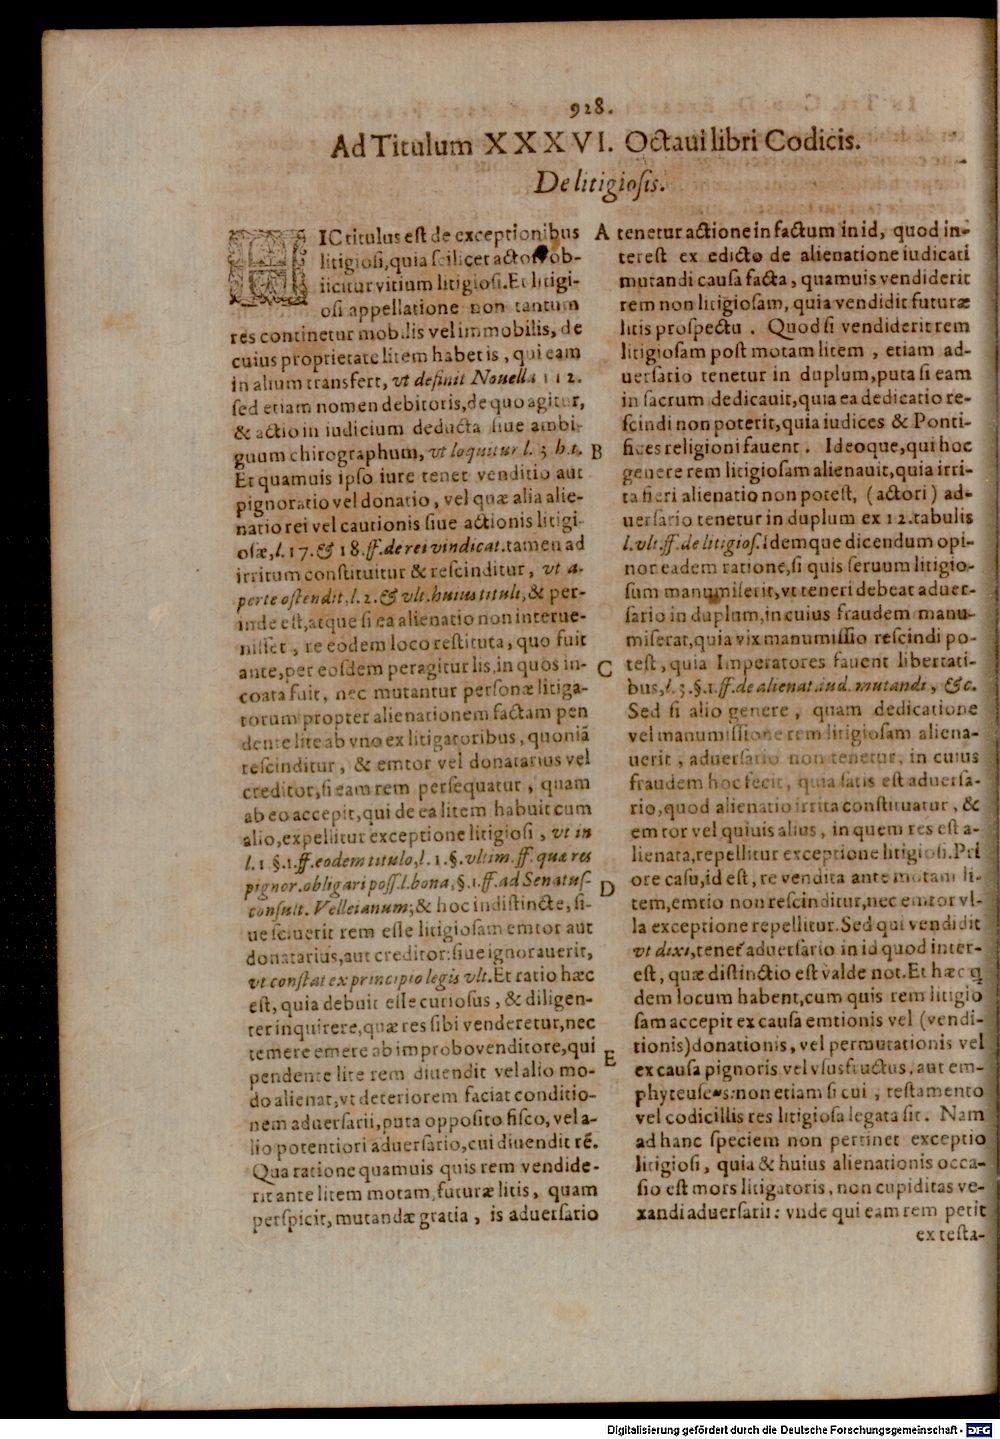 928.
Ad Titulum XXXVI. Octaui libri Codicis.
De litigiosis.
HIC titulus est de exceptionibus
litigiosi, quia scilicet actori ob-
iicitur vitium litigiosi. Et litigi-
osi appellatione non tantum
res continetur mobilis vel immobilis, de
cuius proprietate litem habet is, qui eam
in alium transfert, vt definit Nouella 112.
sed etiam nomen debitoris, de quo agitur,
& actio in iudicium deducta siue ambi-
guum chirographum, vt loquitur l. 3. h.t.
Et quamuis ipso iure tenet venditio aut
pignoratio vel donatio, vel quæ alia alie-
natio rei vel cautionis siue actionis litigi-
osæ, l. 17. & 18. ff. de rei vindicat. tamen ad
irritum constituitur & rescinditur, vt a-
perte ostendit, l. 2. & vlt. huius tituli, & per-
inde est, atque si ea alienatio non interue-
nisset, re eodem loco restituta, quo fuit
ante, per eosdem peragitur lis, in quos in-
coata fuit, nec mutantur personæ litiga-
torum propter alienationem factam pen
dente lite ab vno ex litigatoribus, quoniã
rescinditur, & emtor vel donatarius vel
creditor, si eam rem persequatur, quam
ab eo accepit, qui de ea litem habuit cum
alio, expellitur exceptione litigiosi, vt in
l. 1 §. 1. ff. eodem titulo, l. 1. §. vltim. ff. quæ res
pignor. obligari poss. l. bona, §. 1. ff. ad Senatus-
consult. Velleianum; & hoc indistincte, si-
ue sciuerit rem esse litigiosam emtor aut
donatarius, aut creditor: siue ignorauerit,
vt constat ex principio legis vlt. Et ratio hæc
est, quia debuit esse curiosus, & diligen-
ter inquirere, quæ res sibi venderetur, nec
temere emere ab improbo venditore, qui
pendente lite rem diuendit vel alio mo-
do alienat, vt deteriorem faciat conditio-
nem aduersarii, puta opposito fisco, vel a-
lio potentiori aduersario, cui diuendit rẽ.
Qua ratione quamuis quis rem vendide-
rit ante litem motam, futuræ litis, quam
perspicit, mutandæ gratia, is aduersario
A tenetur actione in factum in id, quod in-
terest ex edicto de alienatione iudicati
mutandi causa facta, quamuis vendiderit
rem non litigiosam, quia vendidit futuræ
litis prospectu. Quod si vendiderit rem
litigiosam post motam litem, etiam ad-
uersario tenetur in duplum, puta si eam
in sacrum dedicauit, quia ea dedicatio re-
scindi non poterit, quia iudices & Ponti-
B fices religioni fauent. Ideoque, qui hoc
genere rem litigiosam alienauit, quia irri-
ta fieri alienatio non potest, (actori) ad-
uersario tenetur in duplum ex 12. tabulis
l. vlt. ff. de litigios. idemque dicendum opi-
nor eadem ratione, si quis seruum litigio-
sum manumiserit, vt teneri debeat aduer-
sario in duplum, in cuius fraudem manu-
miserat, quia vix manumissio rescindi po-
C test, quia Imperatores fauent libertati-
bus, l. 3. §. 1. ff. de alienat. iud. mutandi, &c.
Sed si alio genere, quam dedicatione
vel manumissione rem litigiosam aliena-
uerit, aduersario non tenetur, in cuius
fraudem hoc fecit, quia satis est aduersa-
rio, quod alienatio irrita constituatur, &
emtor vel quiuis alius, in quem res est a-
lienata, repellitur exceptione litigiosi. Pri
ore casu, id est, re vendita ante motam li-
D tem, emtio non rescinditur, nec emtor vl-
la exceptione repellitur. Sed qui vendidit
vt dixi, tenet aduersario in id quod inter-
est, quæ distinctio est valde not. Et hæc q
dem locum habent, cum quis rem litigio
sam accepit ex causa emtionis vel (vendi-
tionis) donationis, vel permutationis vel
E ex causa pignoris vel vsusfructus, aut em-
phyteuseos: non etiam si cui, testamento
vel codicillis res litigiosa legata sit. Nam
ad hanc speciem non pertinet exceptio
litigiosi, quia & huius alienationis occa-
sio est mors litigatoris, non cupiditas ve-
xandi aduersarii: vnde qui eam rem petit
ex testa-
Digitalisierung gefördert durch die Deutsche Forschungsgemeinschaft - DFG